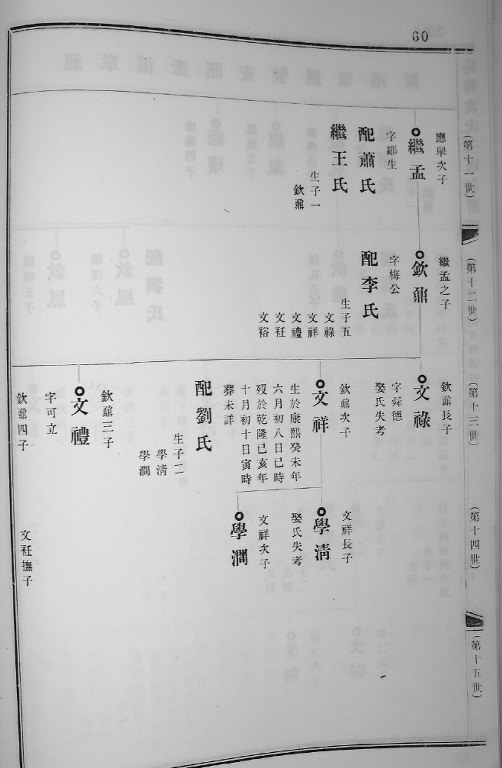 60
(第十一世)
應舉次子
繼孟
字鄒生
配蕭氏
繼王氏
生子一
欽鼐
(第十二世)
繼孟之子
欽鼐
字梅公
配李氏
生子五
文祿
文祥
文禮
文社
文裕
(第十三世)
欽鼐長子
文祿
字舜德
娶氏失考
欽鼐次子
文祥
生於康熙癸未年
六月初八日巳時
歿於乾隆己亥年
十月初十日寅時
葬未詳
配劉氏
生子二
學清
學澗
欽鼐三子
文禮
字可立
欽鼐四子
(第十四世)
文祥長子
學清
娶氏失考
文祥次子
學澗
文社撫子
(第十五世)